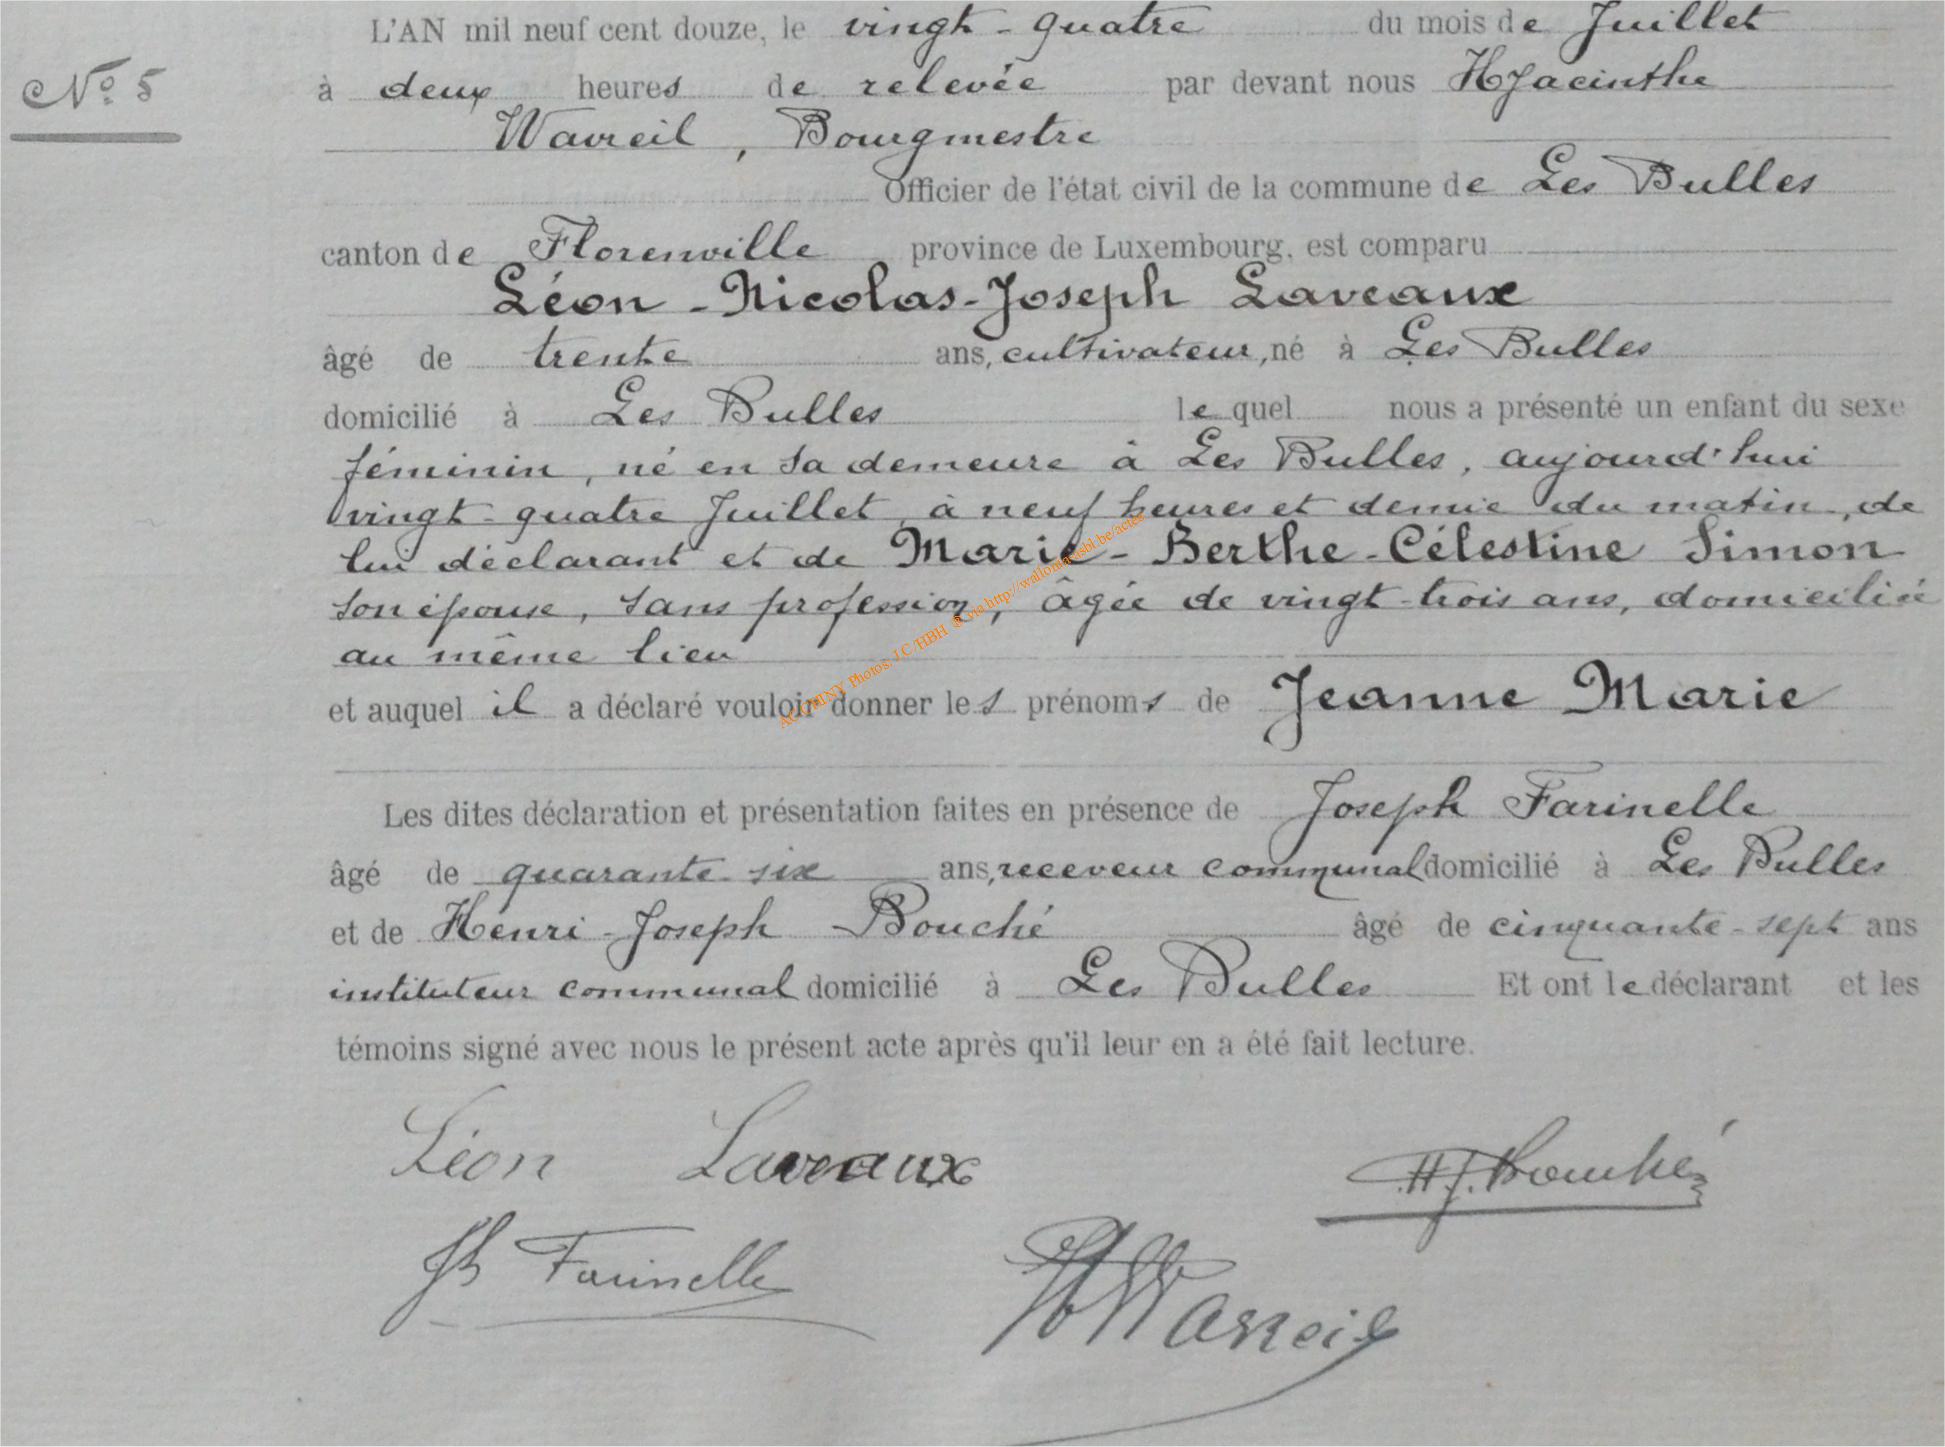 L'AN mil neuf cent douze, le vingt-quatre du mois de Juillet
N° 5
à deux heures de relevée par devant nous Hyacinthe
Wavreil, Bourgmestre
Officier de l'état civil de la commune de Les Bulles
canton de Florenville province de Luxembourg, est comparu
Léon-Nicolas-Joseph Laveaux
âgé de trente ans, cultivateur, né à Les Bulles
domicilié à Les Bulles lequel nous a présenté un enfant du sexe
féminin, né en sa demeure à Les Bulles, aujourd'hui
vingt-quatre Juillet, à neuf heures et demie du matin, de
lui déclarant et de Marie-Berthe-Célestine Simon
son épouse, sans profession, âgée de vingt-trois ans, domiciliée
au même lieu
et auquel il a déclaré vouloir donner les prénoms de Jeanne Marie
ACGHINY Photos. J.C/HBH © via http://wallonia-asbl.be/actes
Les dites déclaration et présentation faites en présence de Joseph Farinelle
âgé de quarante-six ans, receveur communal domicilié à Les Bulles
et de Henri-Joseph Bouché âgé de cinquante-sept ans
instituteur communal domicilié à Les Bulles Et ont le déclarant et les
témoins signé avec nous le présent acte après qu'il leur en a été fait lecture.
Léon Laveaux
H.J. Bouché
Jh Farinelle
H Wavreil